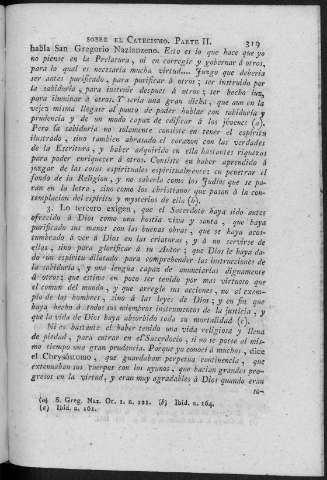 SOBRE EL CATECISMO. PARTE II. 319
habla San Gregorio Nazianzeno. Esto es lo que hace que yo
no piense en la Prelatura, ni en corregir y gobernar á otros,
para lo qual es necesaria mucha virtud.... Juzgo que deberia
ser antes purificado, para purificar á otros; ser instruido por
la sabiduría, para instruir despues á otros; ser hecho luz,
para iluminar á otros. Y seria una gran dicha, que aun en la
vejez misma llegase al punto de poder hablar con sabiduría y
prudencia y de un modo capaz de edificar á los jóvenes (a).
Pero la sabiduría no solamente consiste en tener el espíritu
ilustrado, sino tambien abrasado el corazon con las verdades
de la Escritura, y haber adquirido en ella bastantes riquezas
para poder enriquecer á otros. Consiste en haber aprendido á
juzgar de las cosas espirituales espiritualmente: en penetrar el
fondo de la Religion, y no saberla como los Judíos que se pa-
ran en la letra, sino como los christianos que pasan á la con-
templacion del espíritu y mysterios de ella (b).
3. Lo tercero exigen, que el Sacerdote haya sido antes
ofrecido á Dios como una hostia viva y santa, que haya
purificado sus manos con las buenas obras, que se haya acos-
tumbrado á ver á Dios en las criaturas, y á no servirse de
ellas, sino para glorificar á su Autor; que Dios le haya da-
do un espíritu dilatado para comprehender las instrucciones de
la sabiduría, y una lengua capaz de anunciarlas dignamente
á otros; que estime en poco ser tenido por mas virtuoso que
el comun del mundo, y que arregle sus acciones, no al exem-
plo de los hombres, sino á las leyes de Dios; y en fin que
haya hecho á todos sus miembros instrumentos de la justicia, y
que la vida de Dios haya absorbido toda su mortalidad (c).
Ni es bastante el haber tenido una vida religiosa y llena
de piedad, para entrar en el Sacerdocio, si no se posee al mis-
mo tiempo una gran prudencia. Porque yo conocí á muchos, dice
el Chrysóstomo, que guardaban perpetua continencia, que
extenuaban sus cuerpos con los ayunos, que hacian grandes pro-
gresos en la virtud, y eran muy agradables á Dios quando eran
so-
(a) S. Greg. Naz. Or. 1. n. 121. (b) Ibid. n. 164.
(c) Ibid. n. 161.